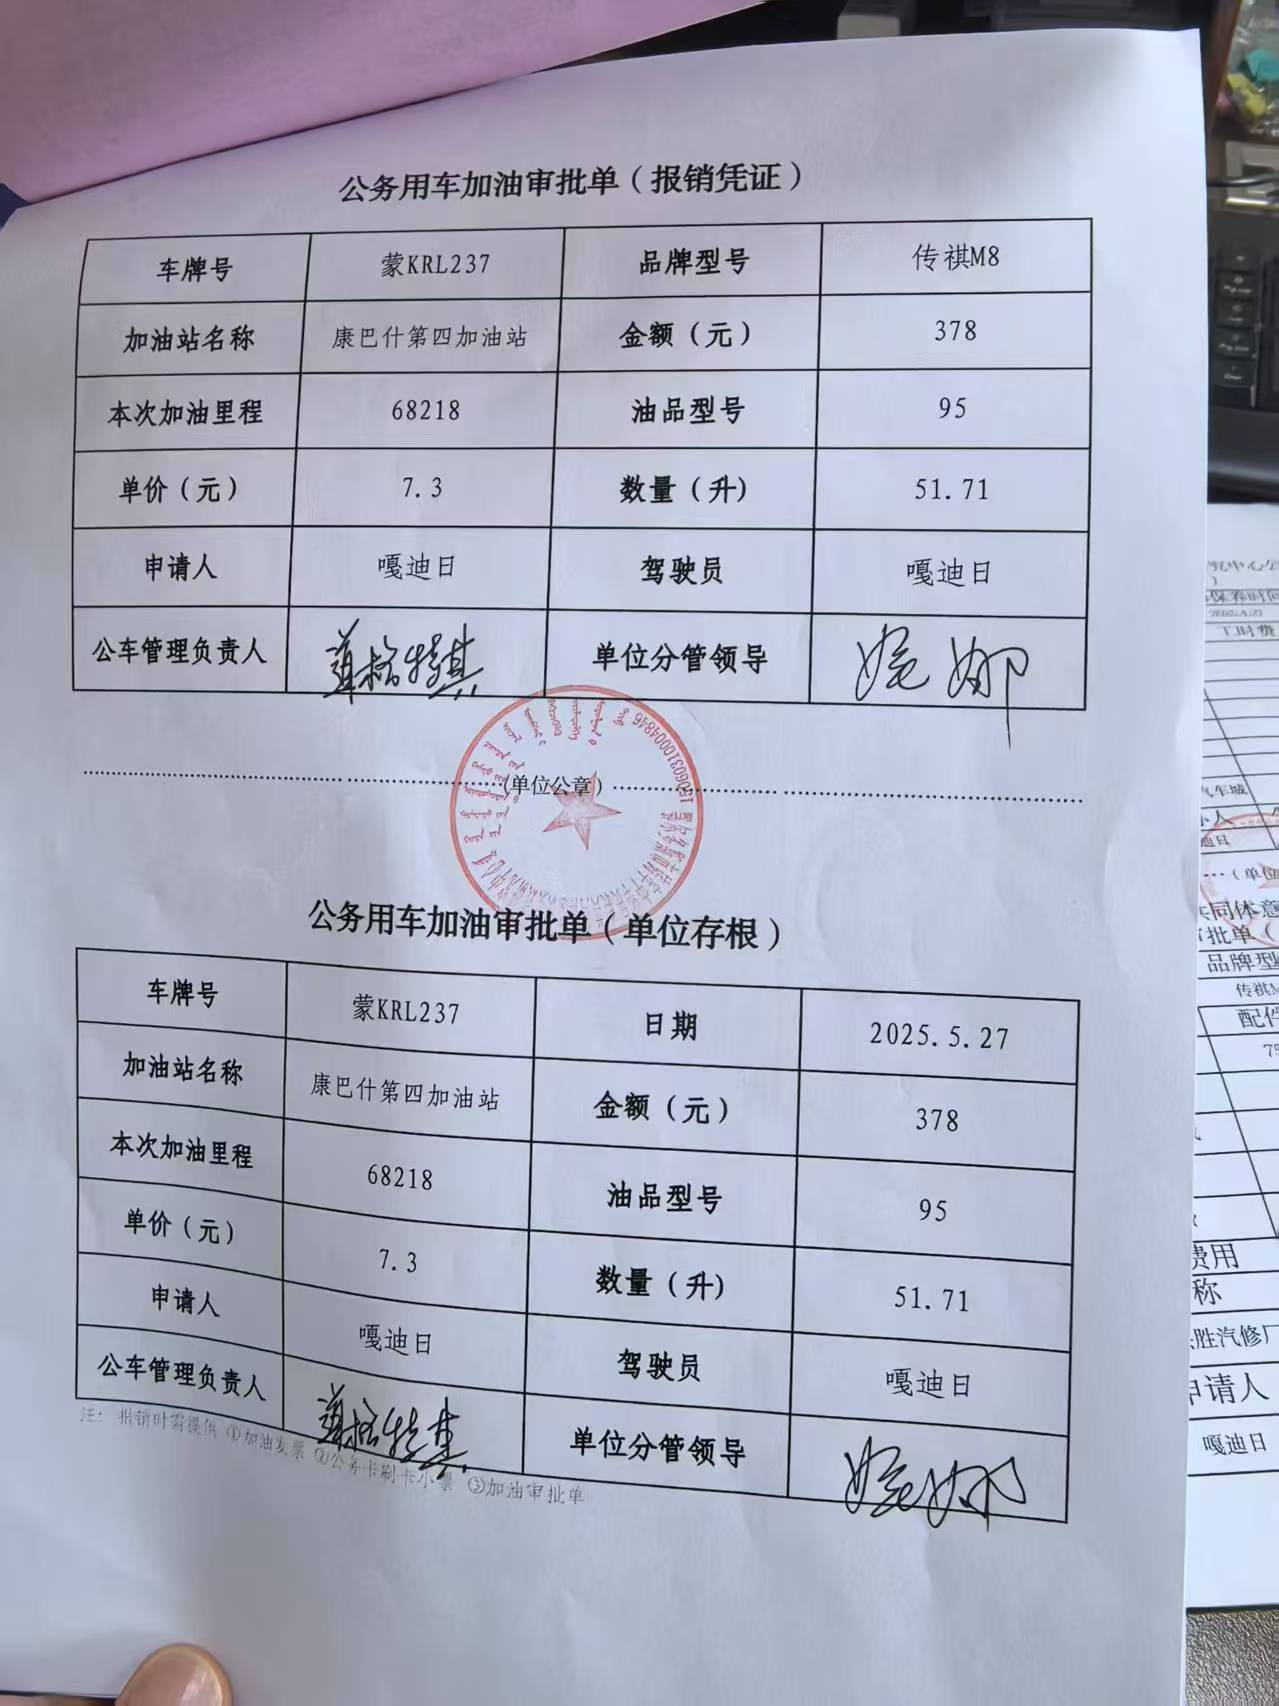 公务用车加油审批单（报销凭证）
车牌号 蒙KRL237 品牌型号 传祺M8
加油站名称 康巴什第四加油站 金额（元） 378
本次加油里程 68218 油品型号 95
单价（元） 7.3 数量（升） 51.71
申请人 嘎迪日 驾驶员 嘎迪日
公车管理负责人 单位分管领导 娜
(单位公章)
公务用车加油审批单（单位存根）
车牌号 蒙KRL237 日期 2025.5.27
加油站名称 康巴什第四加油站 金额（元） 378
本次加油里程 68218 油品型号 95
单价（元） 7.3 数量（升） 51.71
申请人 嘎迪日 驾驶员 嘎迪日
公车管理负责人 单位分管领导 娜
注： 报销时需提供 ①加油发票 ②公务卡刷卡小票 ③加油审批单
工时费
汽车城
共同体意
审批单（
品牌型
传祺M
配件
费用
称
胜汽修厂
申请人
嘎迪日